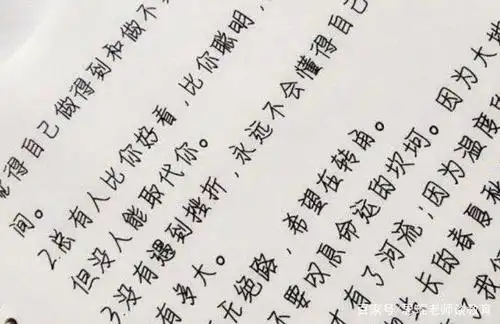 得自己做得到和做不
间。
2.总有人比你好看，比你聪明，
但没人能取代你。
3.没有遇到挫折，永远不会懂得自己
有多大。
无绝路，希望在转角。
不要叹息命运的坎坷。因为大地
有了河流；因为温度
长的春夏秋
百家号/
老师谈教育